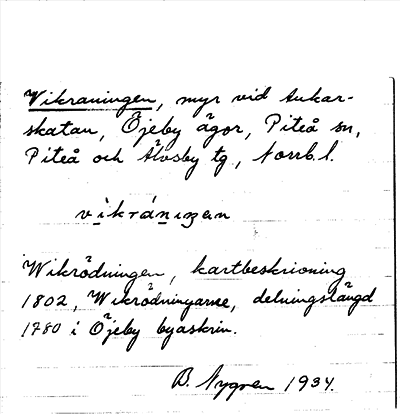 Vikraningen, myr vid Ankar-
skatan, Öjeby ägor, Piteå sn,
Piteå och Älvsby tg., Norrb. l.
vikrániŋən
Wikrödningen, kartbeskrivning
1802, Wikrödningarne, delningslängd
1780 i Öjeby byaskrin.
B. Nygren 1934.